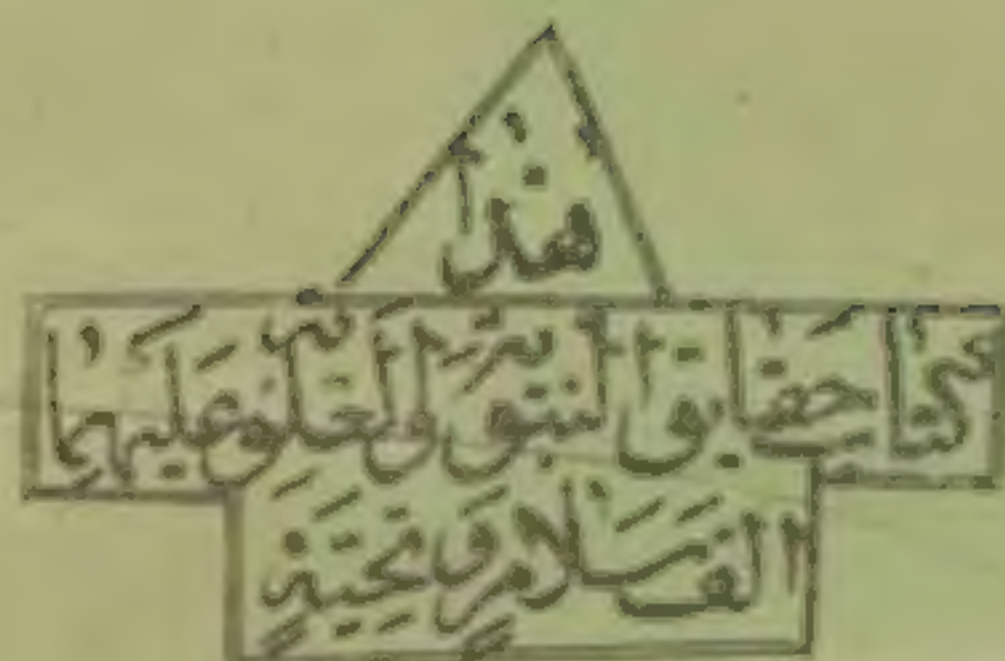 هٰذا
كتاب خصايص النبوي والعلوي عليهما
الف سلام و تحية